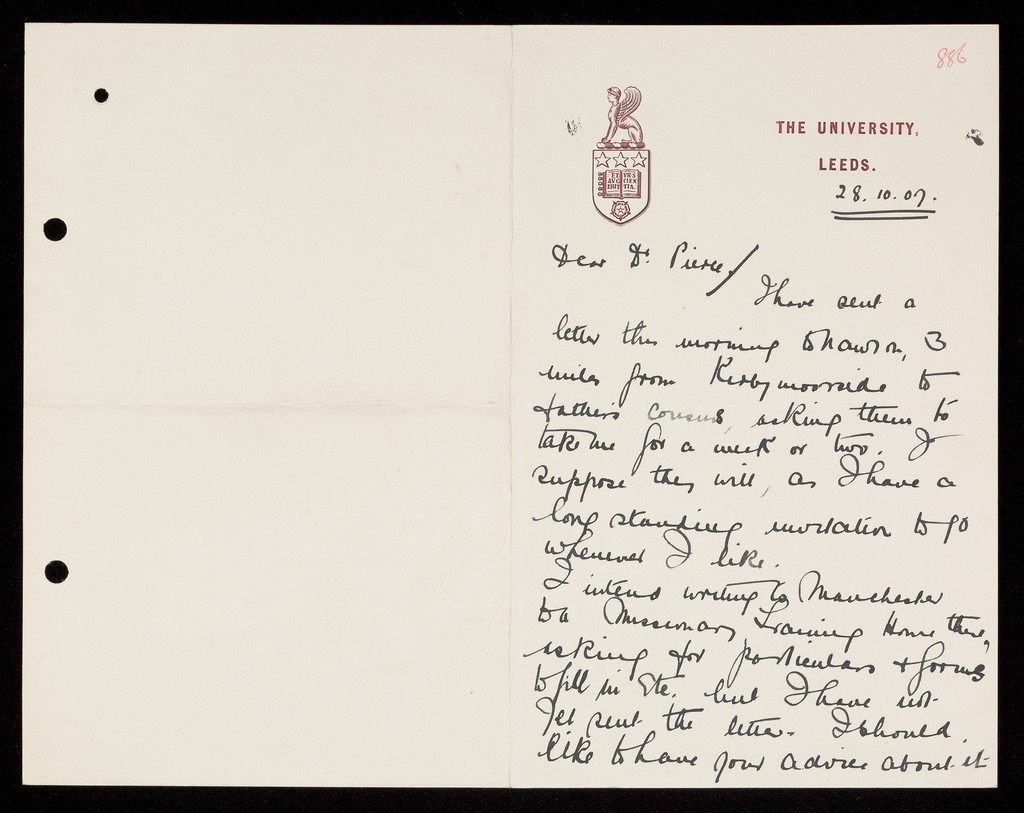 886
THE UNIVERSITY,
LEEDS.
28.10.07.
ET AVG EBIT VR·S CIEN TIA
Dear Dr. Pierce,
I have sent a
letter this morning to , 3
miles from Kirbymoorside to
father's cousins, asking them to
take me for a week or two. I
suppose they will, as I have a
long standing invitation to go
whenever I like.
I intend writing to Manchester
to a Missionary Training Home there,
asking for particulars & forms
to fill in Etc. but I have not
yet sent the letter. I should
like to have your advice about it